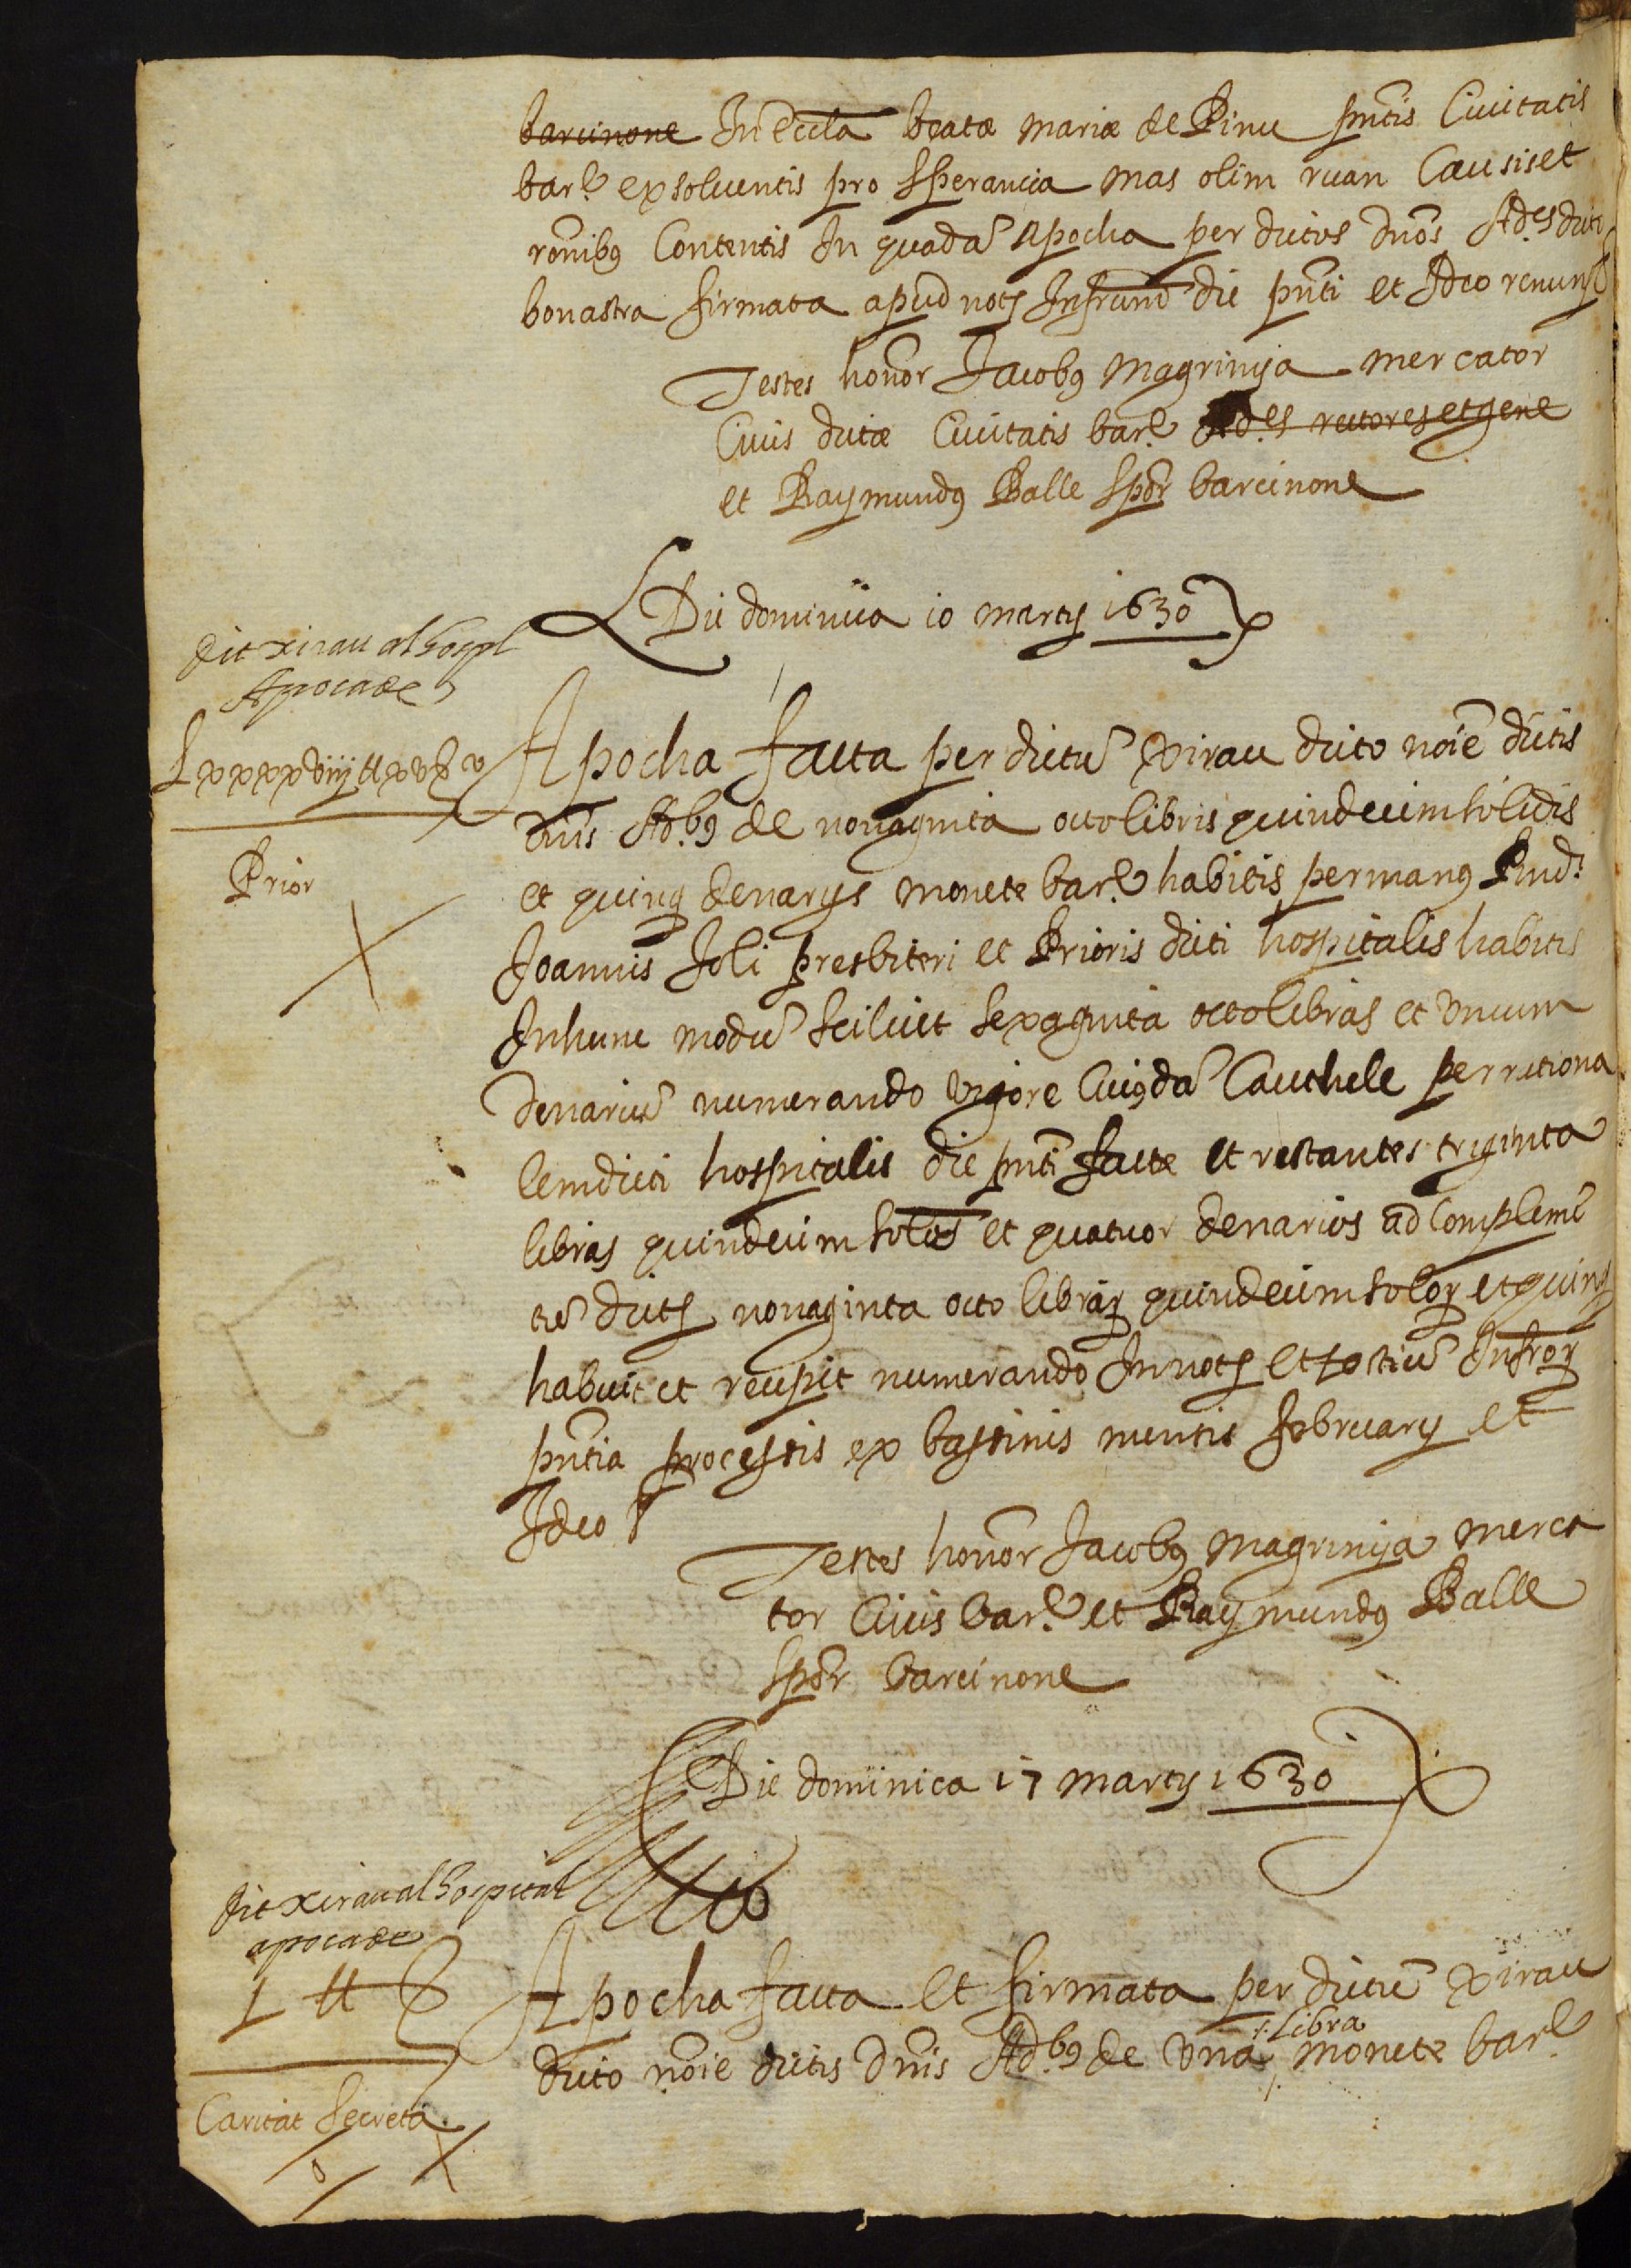 barcinone In Eccla beatæ mariæ de Pinu pntis Civitatis
bar.e exsolventis pro Sperancia mas olim ruan Causis et
ronibus Contentis In quada apocha per dictos dnos Ad.es dicto
bonastra firmata apud not. Infrum die pnti et Ideo renun.
Testes honor Jacobus Magrinya mercator
Civis dictæ Civitatis bar.e Ad.es rectores et gene
et Raymundus Balle Spor barcinone
Die dominica 10 marty 1630
dit xirau al hospl
Apoca de
Lxxxxviij ll xv s v
Prior
Apocha facta per dictu xirau dicto noie dictis
dnis Ad.bus de nonaginta octo libris quindecim solidis
et quinq denarys monete bar.e habitis per manus Rnd.
Joannis Joli presbiteri et Prioris dicti hospitalis habitis
In hunc modu scilicet sexaginta octo libras et unum
denariu numerando vigore Cuiusda Cauthele per rationa
lem dicti hospitalis die pnti factæ et restantes triginta
libras quindecim solos et quatuor denarios ad Complemen
tu dict. nonaginta octo librar. quindecim solor. et quinq
habuit et recepit numerando In not. et testiu Infror.
pntia processis ex bassinis mensis february et
Ideo
Testes honor Jacobus Magrinya merca
tor Civis bar.e et Raymundus Balle
Spor barcinone
Die dominica 17 marty 1630
dit Xirau al hospital
apoca de
I ll s
Caritat Secreta
Apocha facta et firmata per dictu xirau
dicto noie dictis dnis Ad.bus de una libra monete bar.e